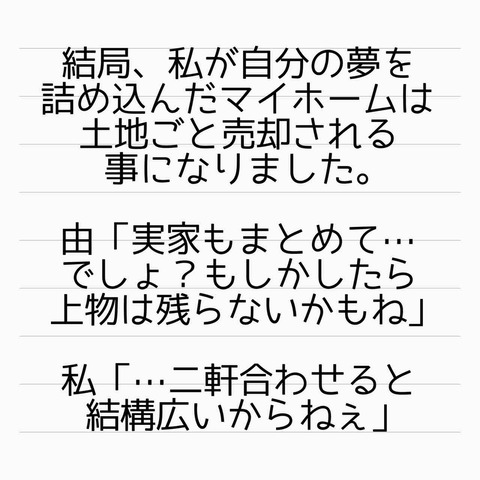 結局、私が自分の夢を
詰め込んだマイホームは
土地ごと売却される
事になりました。
由「実家もまとめて…
でしょ？もしかしたら
上物は残らないかもね」
私「…二軒合わせると
結構広いからねぇ」